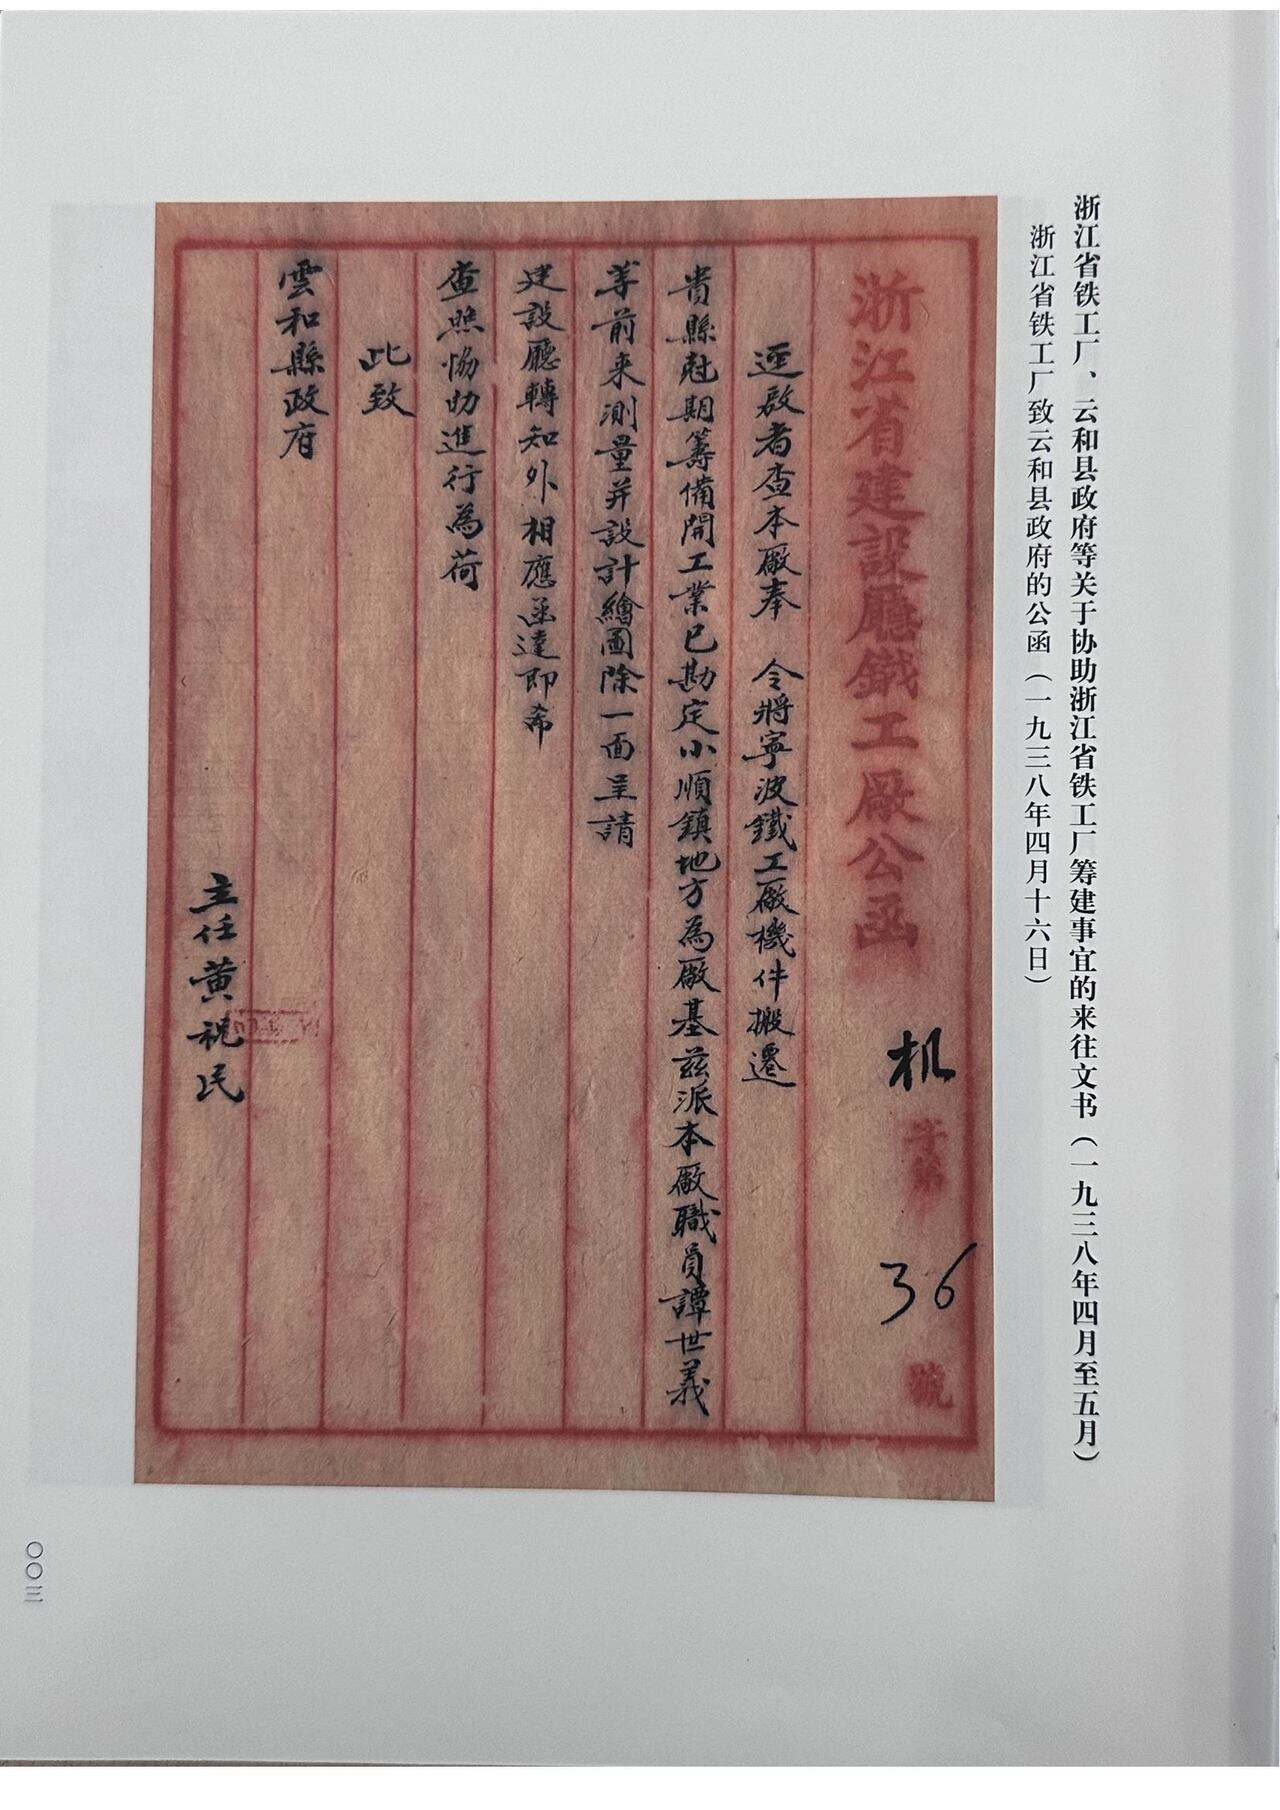 浙江省铁工厂、云和县政府等关于协助浙江省铁工厂筹建事宜的来往文书（一九三八年四月至五月）
浙江省铁工厂致云和县政府的公函（一九三八年四月十六日）
浙江省建設廳鐵工廠公函 机 字第 36 號
逕啟者查本廠奉 令將寧波鐵工廠機件搬遷
貴縣尅期籌備開工業已勘定小順鎮地方為廠基茲派本廠職員譚世義
等前来測量并設計繪圖除一面呈請
建設廳轉知外相應函達即希
查照協助進行為荷
此致
雲和縣政府
主任黄祝民
〇〇三